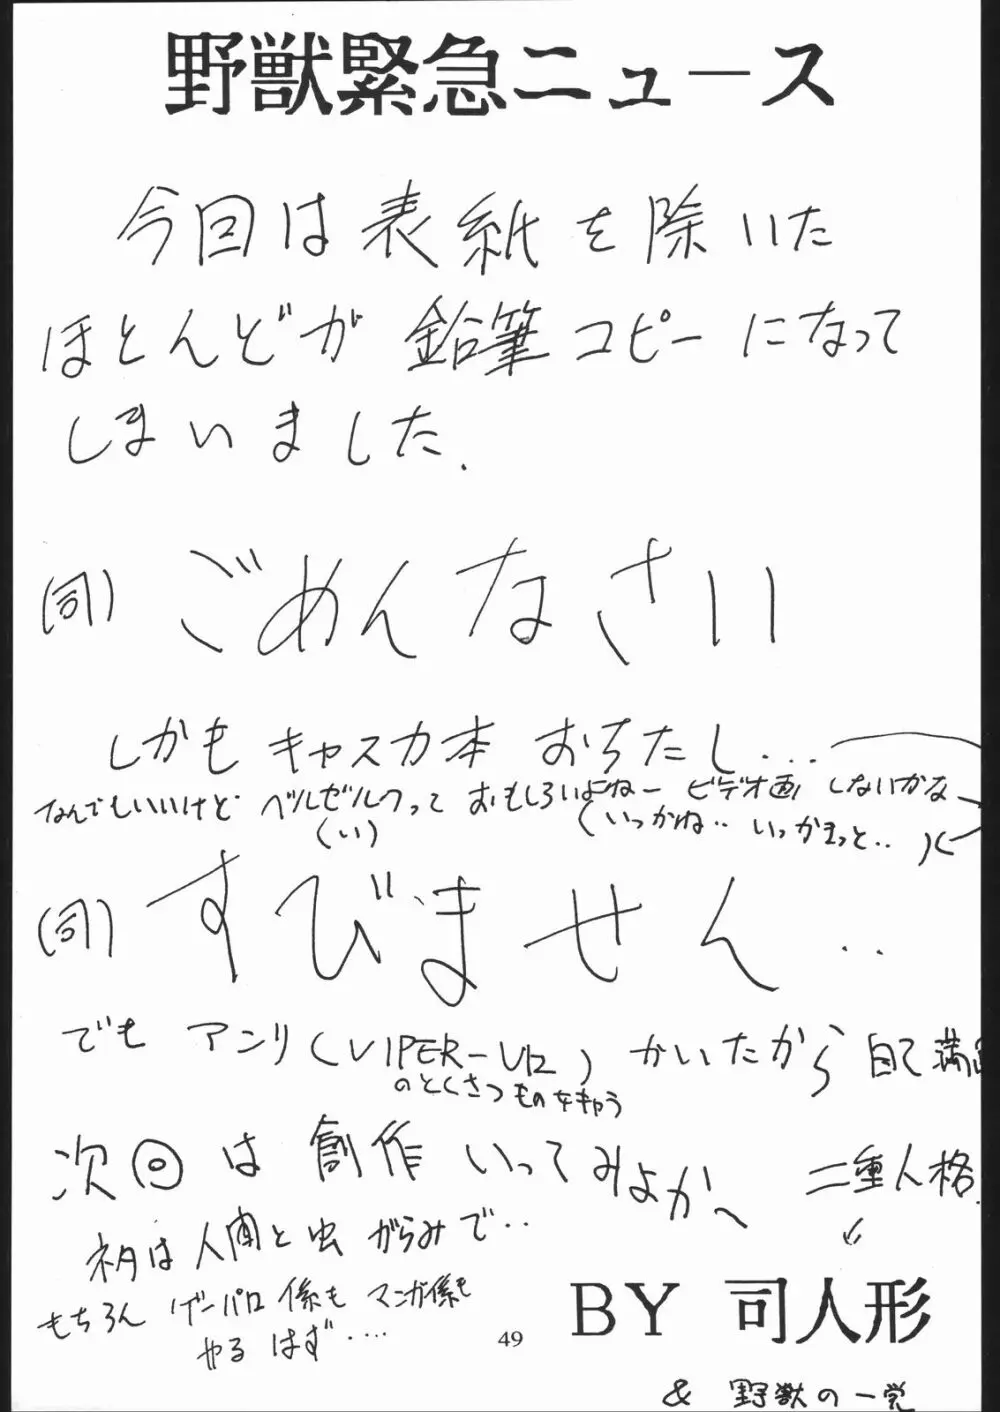 野獣緊急ニュース
今回は表紙を除いた
ほとんどが鉛筆コピーになって
しまいました.
(司) ごめんなさい
しかもキャスカ本おちたし...
なんでもいいけどベルゼルクっておもしろいよねー ビデオ画しないかな
(い) (いっかね.. いっかまっと.. )
(司) すびません..
でも アンリ (VIPER-V12) かいたから 自己満足
のとくさつものをキャラ
次回は創作いってみよか〜 二重人格.
初は人間と虫がらみで...
もちろん ゲーパロ係も マンガ係も
やる はず....
BY 司人形
49
& 野獣の一党